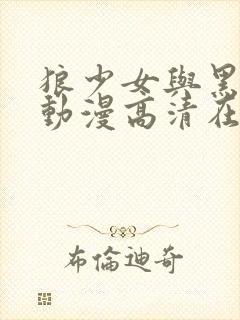 狼少女與黑
動漫高清在
布倫迪奇